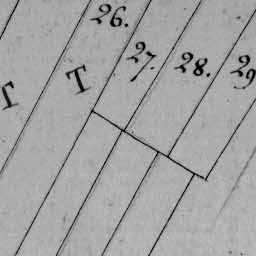 26.
27.
28.
29
T
T